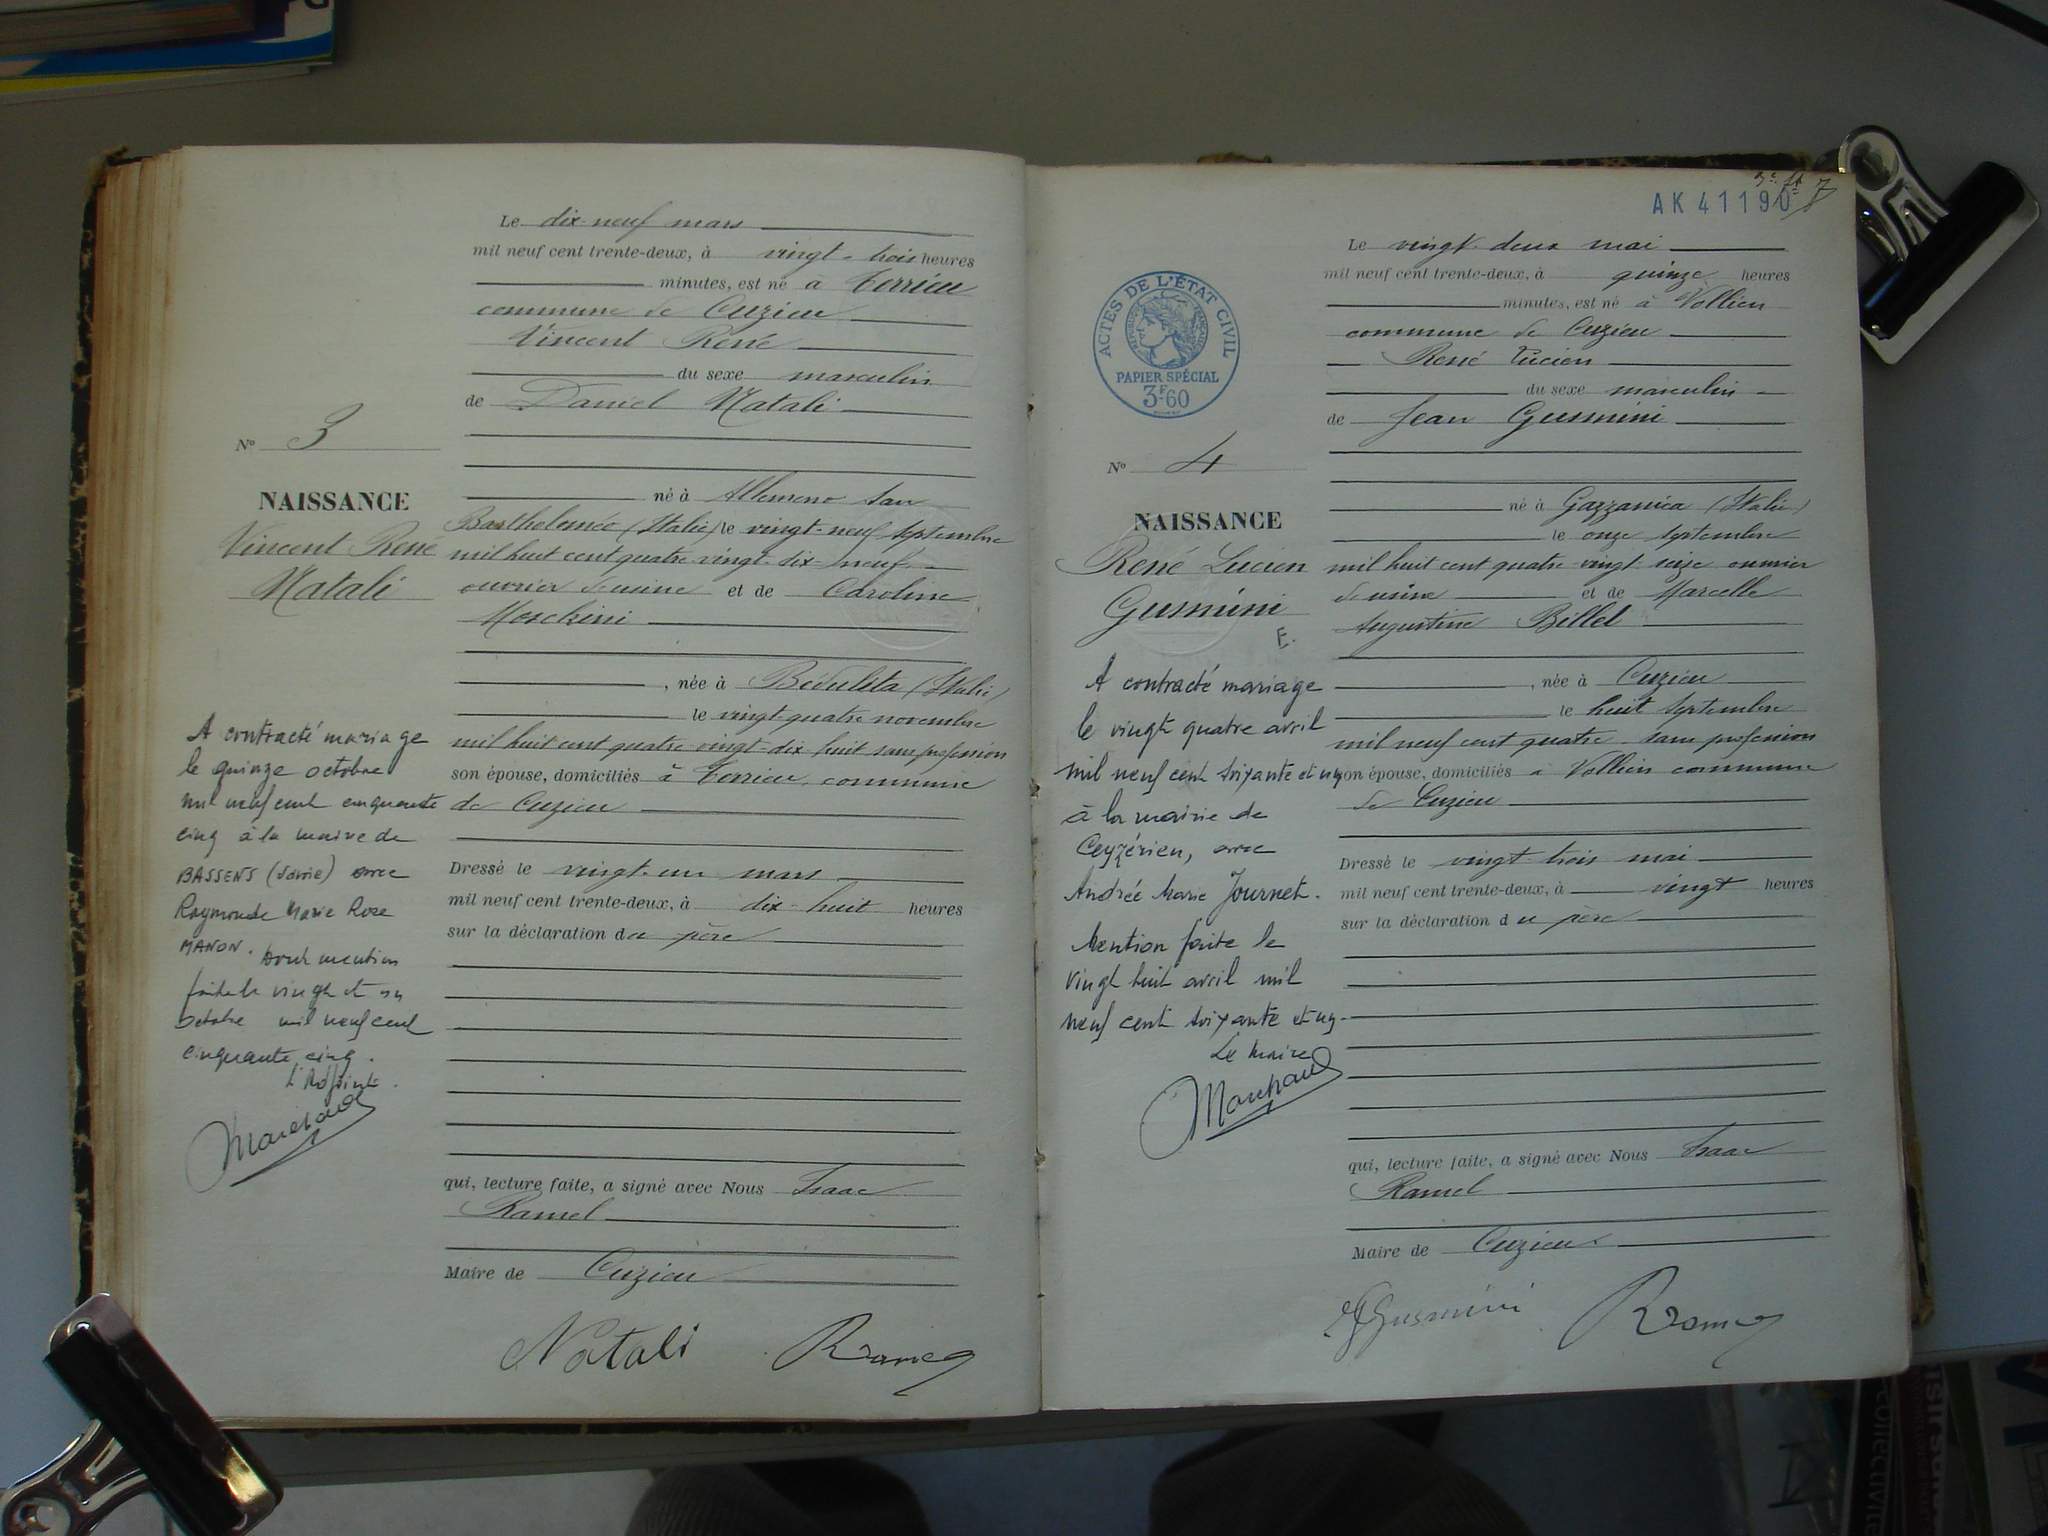 Le dix-neuf mars
mil neuf cent trente-deux, à vingt-trois heures
minutes, est né à Terrieu
commune de Cuzieu
Vincent René
du sexe masculin
de Daniel Natali
né à Allemeno San
Bartheloméo (Italie) le vingt-neuf septembre
mil huit cent quatre-vingt-dix-neuf
ouvrier d'usine et de Caroline
Moschini
, née à Béduleta (Italie)
le vingt-quatre novembre
mil huit cent quatre-vingt-dix huit sans profession
son épouse, domiciliés à Terrieu, commune
de Cuzieu
Dressé le vingt-un mars
mil neuf cent trente-deux, à dix-huit heures
sur la déclaration du père
qui, lecture faite, a signé avec Nous Isaac
Ramel
Maire de Cuzieu
Natali Ramel
No 3
NAISSANCE
Vincent René
Natali
A contracté mariage
le quinze octobre
mil neuf cent cinquante
cinq à la mairie de
BASSENS (Savoie) avec
Raymonde Marie Rose
MANON. Dont mention
faite le vingt et un
octobre mil neuf cent
cinquante cinq.
L'Adjoint.
AK 41190
7
Le vingt-deux mai
mil neuf cent trente-deux, à quinze heures
minutes, est né à Vollien
commune de Cuzieu
René Lucien
du sexe masculin
de Jean Gusmini
né à Gazzanica (Italie)
le onze septembre
mil huit cent quatre-vingt-seize ouvrier
d'usine et de Marcelle
Augustine Billet
, née à Cuzieu
le huit septembre
mil neuf cent quatre sans profession
son épouse, domiciliés à Vollien commune
de Cuzieu
Dressé le vingt-trois mai
mil neuf cent trente-deux, à vingt heures
sur la déclaration du père
qui, lecture faite, a signé avec Nous Isaac
Ramel
Maire de Cuzieu
Gusmini Ramel
ACTES DE L'ÉTAT CIVIL
RÉPUBLIQUE FRANÇAISE
PAPIER SPÉCIAL
3F60
No 4
NAISSANCE
René Lucien
Gusmini
E.
A contracté mariage
le vingt quatre avril
mil neuf cent soixante et un
à la mairie de
Ceyzérieu, avec
Andrée Marie Journet.
Mention faite le
vingt huit avril mil
neuf cent soixante et un.
Le Maire